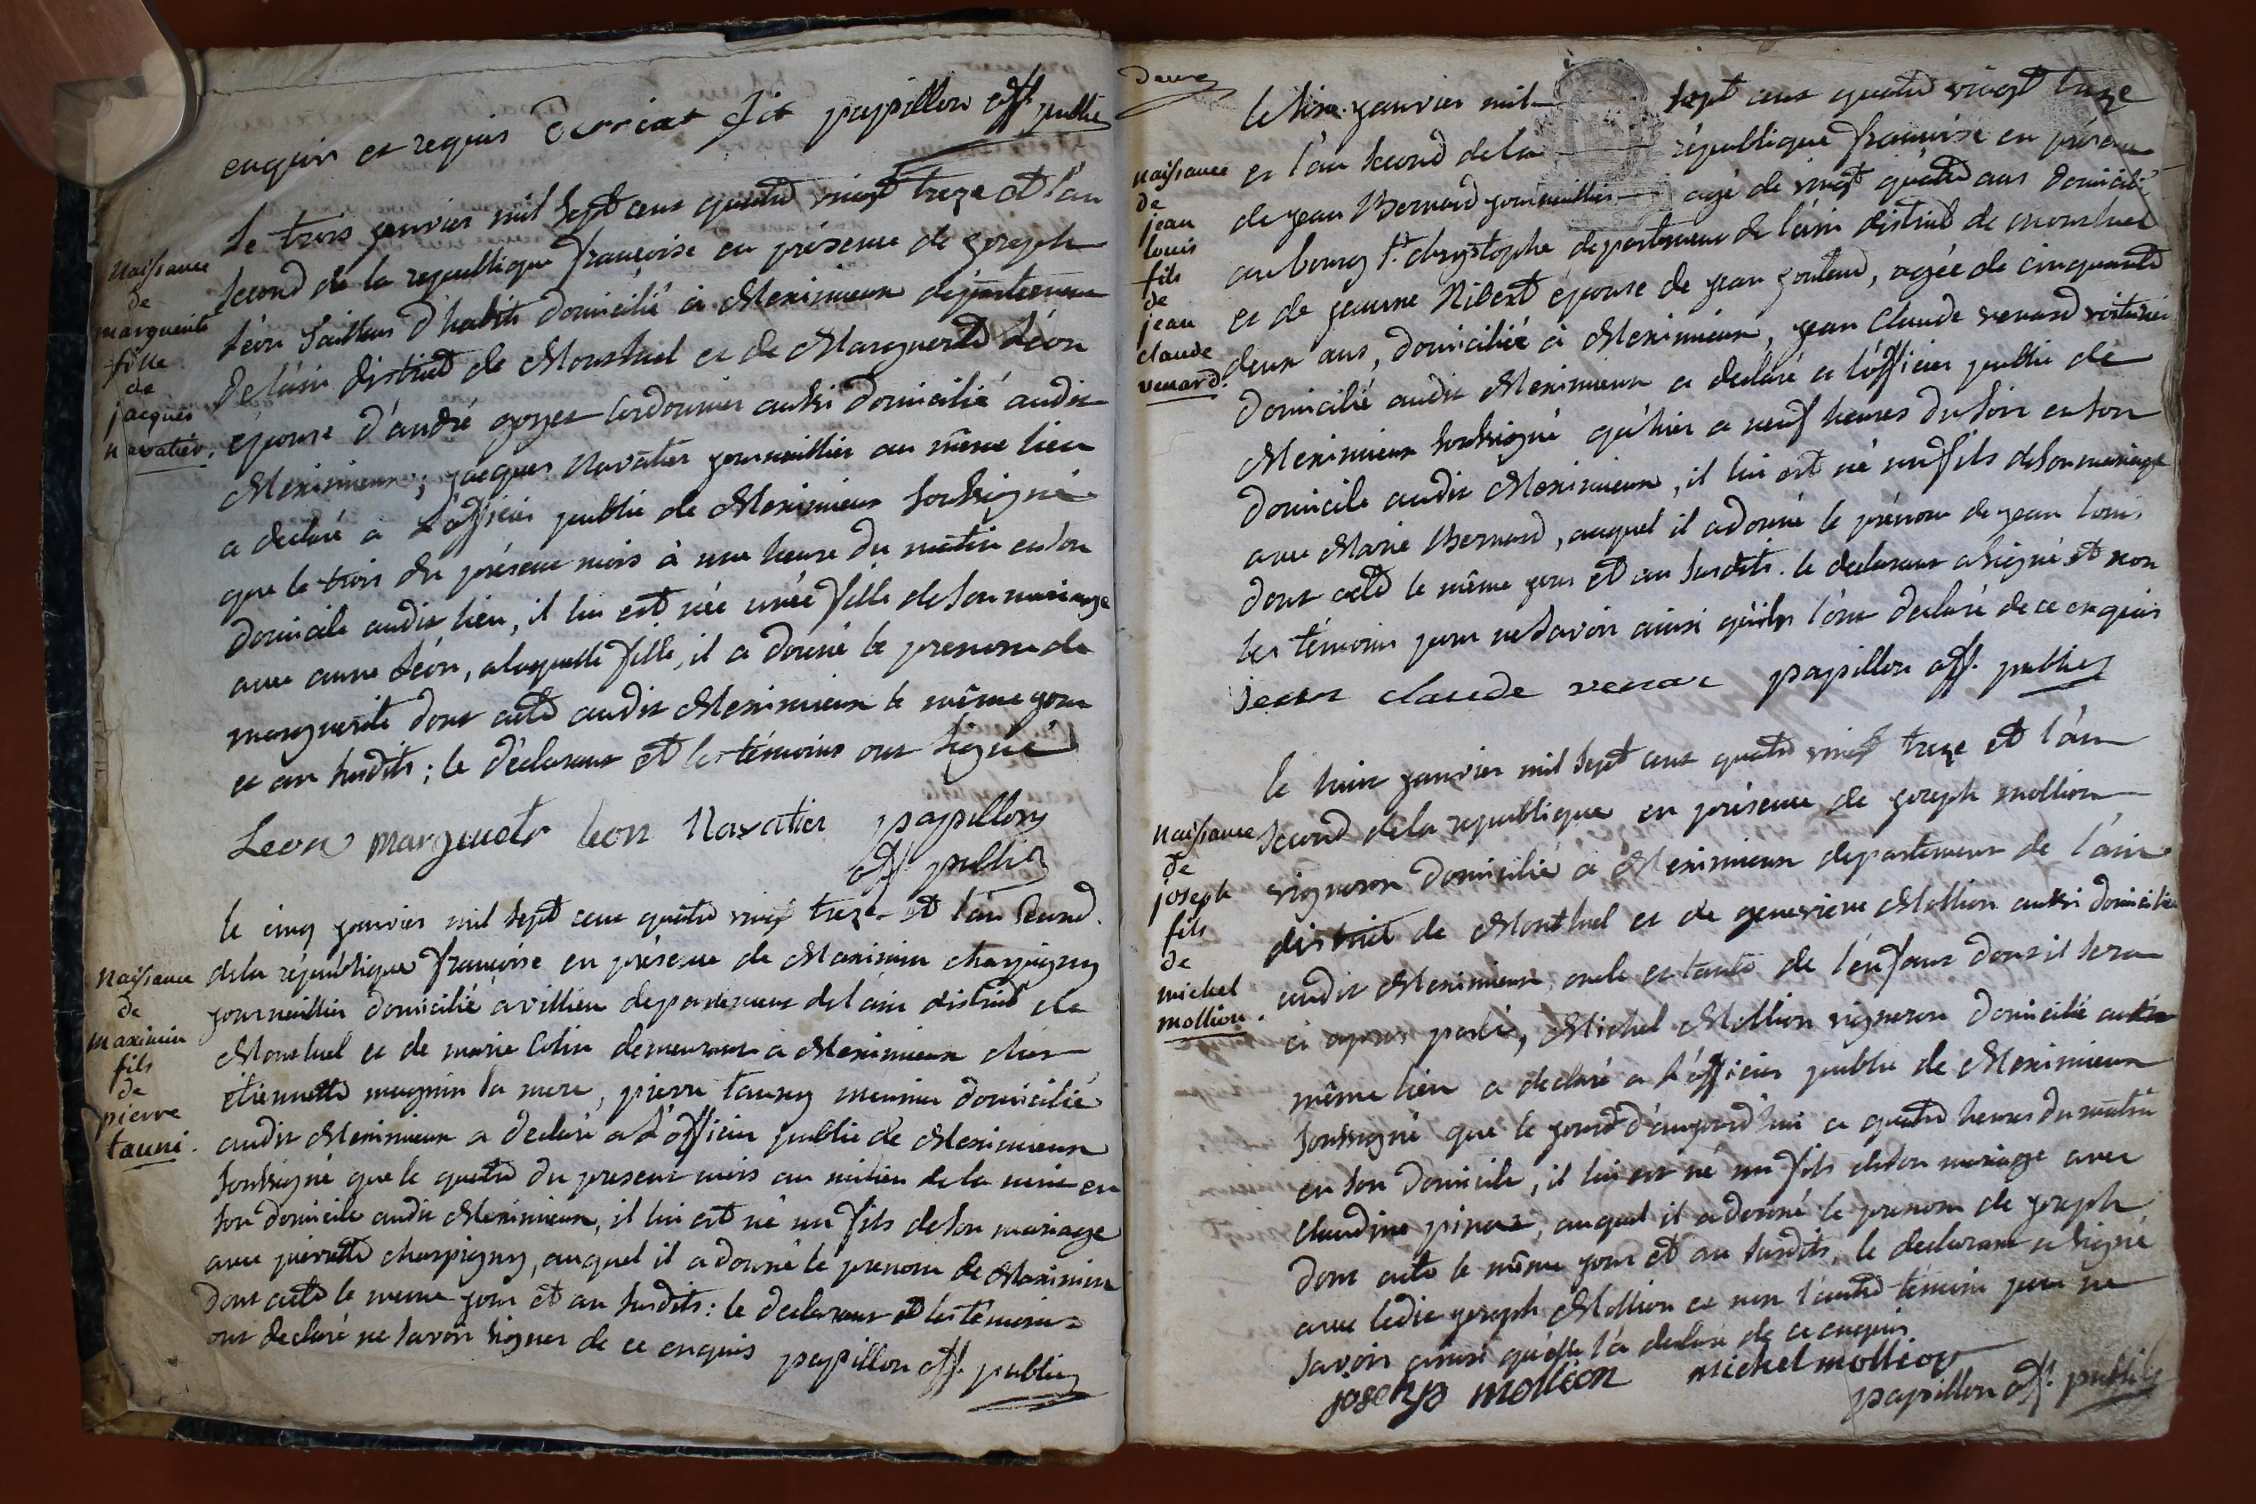 enquis et requis Dorriat fit papillon off. public
Naissance
de
marguerite
fille
de
jacques
navatier.
Le trois janvier mil sept cent quatre vingt treze et l'an
second de la republique françoise en présence de joseph
Léon tailleur d'habits domicilié à Meximieux département
de l'ain district de Montluel et de Marguerite Léon
épouse d'andré goyet cordonnier aussi domicilié audit
Meximieux; jacques Navatier journaillier au même lieu
a declaré a L'officier public de Meximieux soussigné
que le trois du présent mois à une heure du matin en son
domicile audit lieu, il lui est née unée fille de son mariage
avec anne Léon, a laquelle fille, il a donné le prenom de
marguerite dont acte audit Meximieux le même jour
et an susdits; le déclarant et les témoins ont signé
Leon marguerite leon Navatier papillon
off. public
Naissance
de
maximin
fils
de
pierre
tauni.
le cinq janvier mil sept cent quatre vingt treze et l'an second
de la république françoise en présence de Maximin charpigny
journaillier domicilié à villieu departement de l'ain district de
Montluel et de marie Colin demeurant à Meximieux chez
étiennette mugnin sa mere, pierre tauny meunier domicilié
audit Meximieux a declaré a L'officier public de Meximieux
soussigné que le quatre du present mois au milieu de la nuit en
son domicile audit Meximieux, il lui est né un fils de son mariage
avec pierrette charpigny, auquel il a donné le prenom de Maximin
dont acte le meme jour et an susdits: le declarant et les témoins
ont declaré ne savoir signer de ce enquis papillon off. public
deux
Naissance
de
jean
louis
fils
de
jean
claude
venard.
le six janvier mil sept cent quatre vingt treze
et l'an second de la république françoise en présence
de jean Bernard journaillier agé de vingt quatre ans domicilié
au bourg St. chrystophe departement de l'ain district de montluel
et de jeanne Nibert épouse de jean goutard, agée de cinquante
deux ans, domiciliée à Meximieux, jean claude venard voiturier
domicilié audit Meximieux a declaré a l'officier public de
Meximieux soussigné qu'hier a neuf heures du soir en son
domicile audit Meximieux, il lui est né un fils de son mariage
avec Marie Bernard, auquel il a donné le prénom de jean louis
dont acte le même jour et an susdits. le declarant a signé et non
les témoins pour ne savoir ainsi qu'ils l'ont declaré de ce enquis
jean claude venar papillon off. public
Naissance
de
joseph
fils
de
michel
mollion.
le huit janvier mil sept cent quatre vingt treze et l'an
second de la republique en présence de joseph mollion
vigneron domicilié à Meximieux departement de l'ain
district de Montluel et de genevieve Mollion aussi domiciliée
audit Meximieux, oncle et tante de l'enfant dont il sera
ci apres parlé, Michel Mollion vigneron domicilié au
même lieu a declaré a L'officier public de Meximieux
soussigné que le jourd'aujourd'hui a quatre heures du matin
en son domicile, il lui est né un fils de son mariage avec
claudine pinoz, auquel il a donné le prenom de joseph
dont acte le même jour et an susdits, le declarant a signé
avec ledit joseph Mollion et non l'autre témoin pour ne
savoir ainsi qu'elle l'a declaré de ce enquis.
joseph mollion michel mollion
papillon off. public